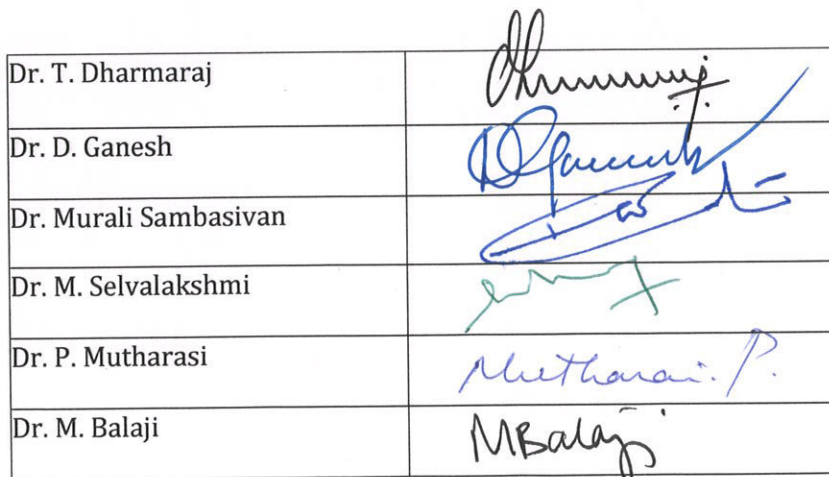 Dr. T. Dharmaraj
Dr. D. Ganesh
Dr. Murali Sambasivan
Dr. M. Selvalakshmi
Dr. P. Mutharasi
Mutharasi. P.
Dr. M. Balaji
MBalaji